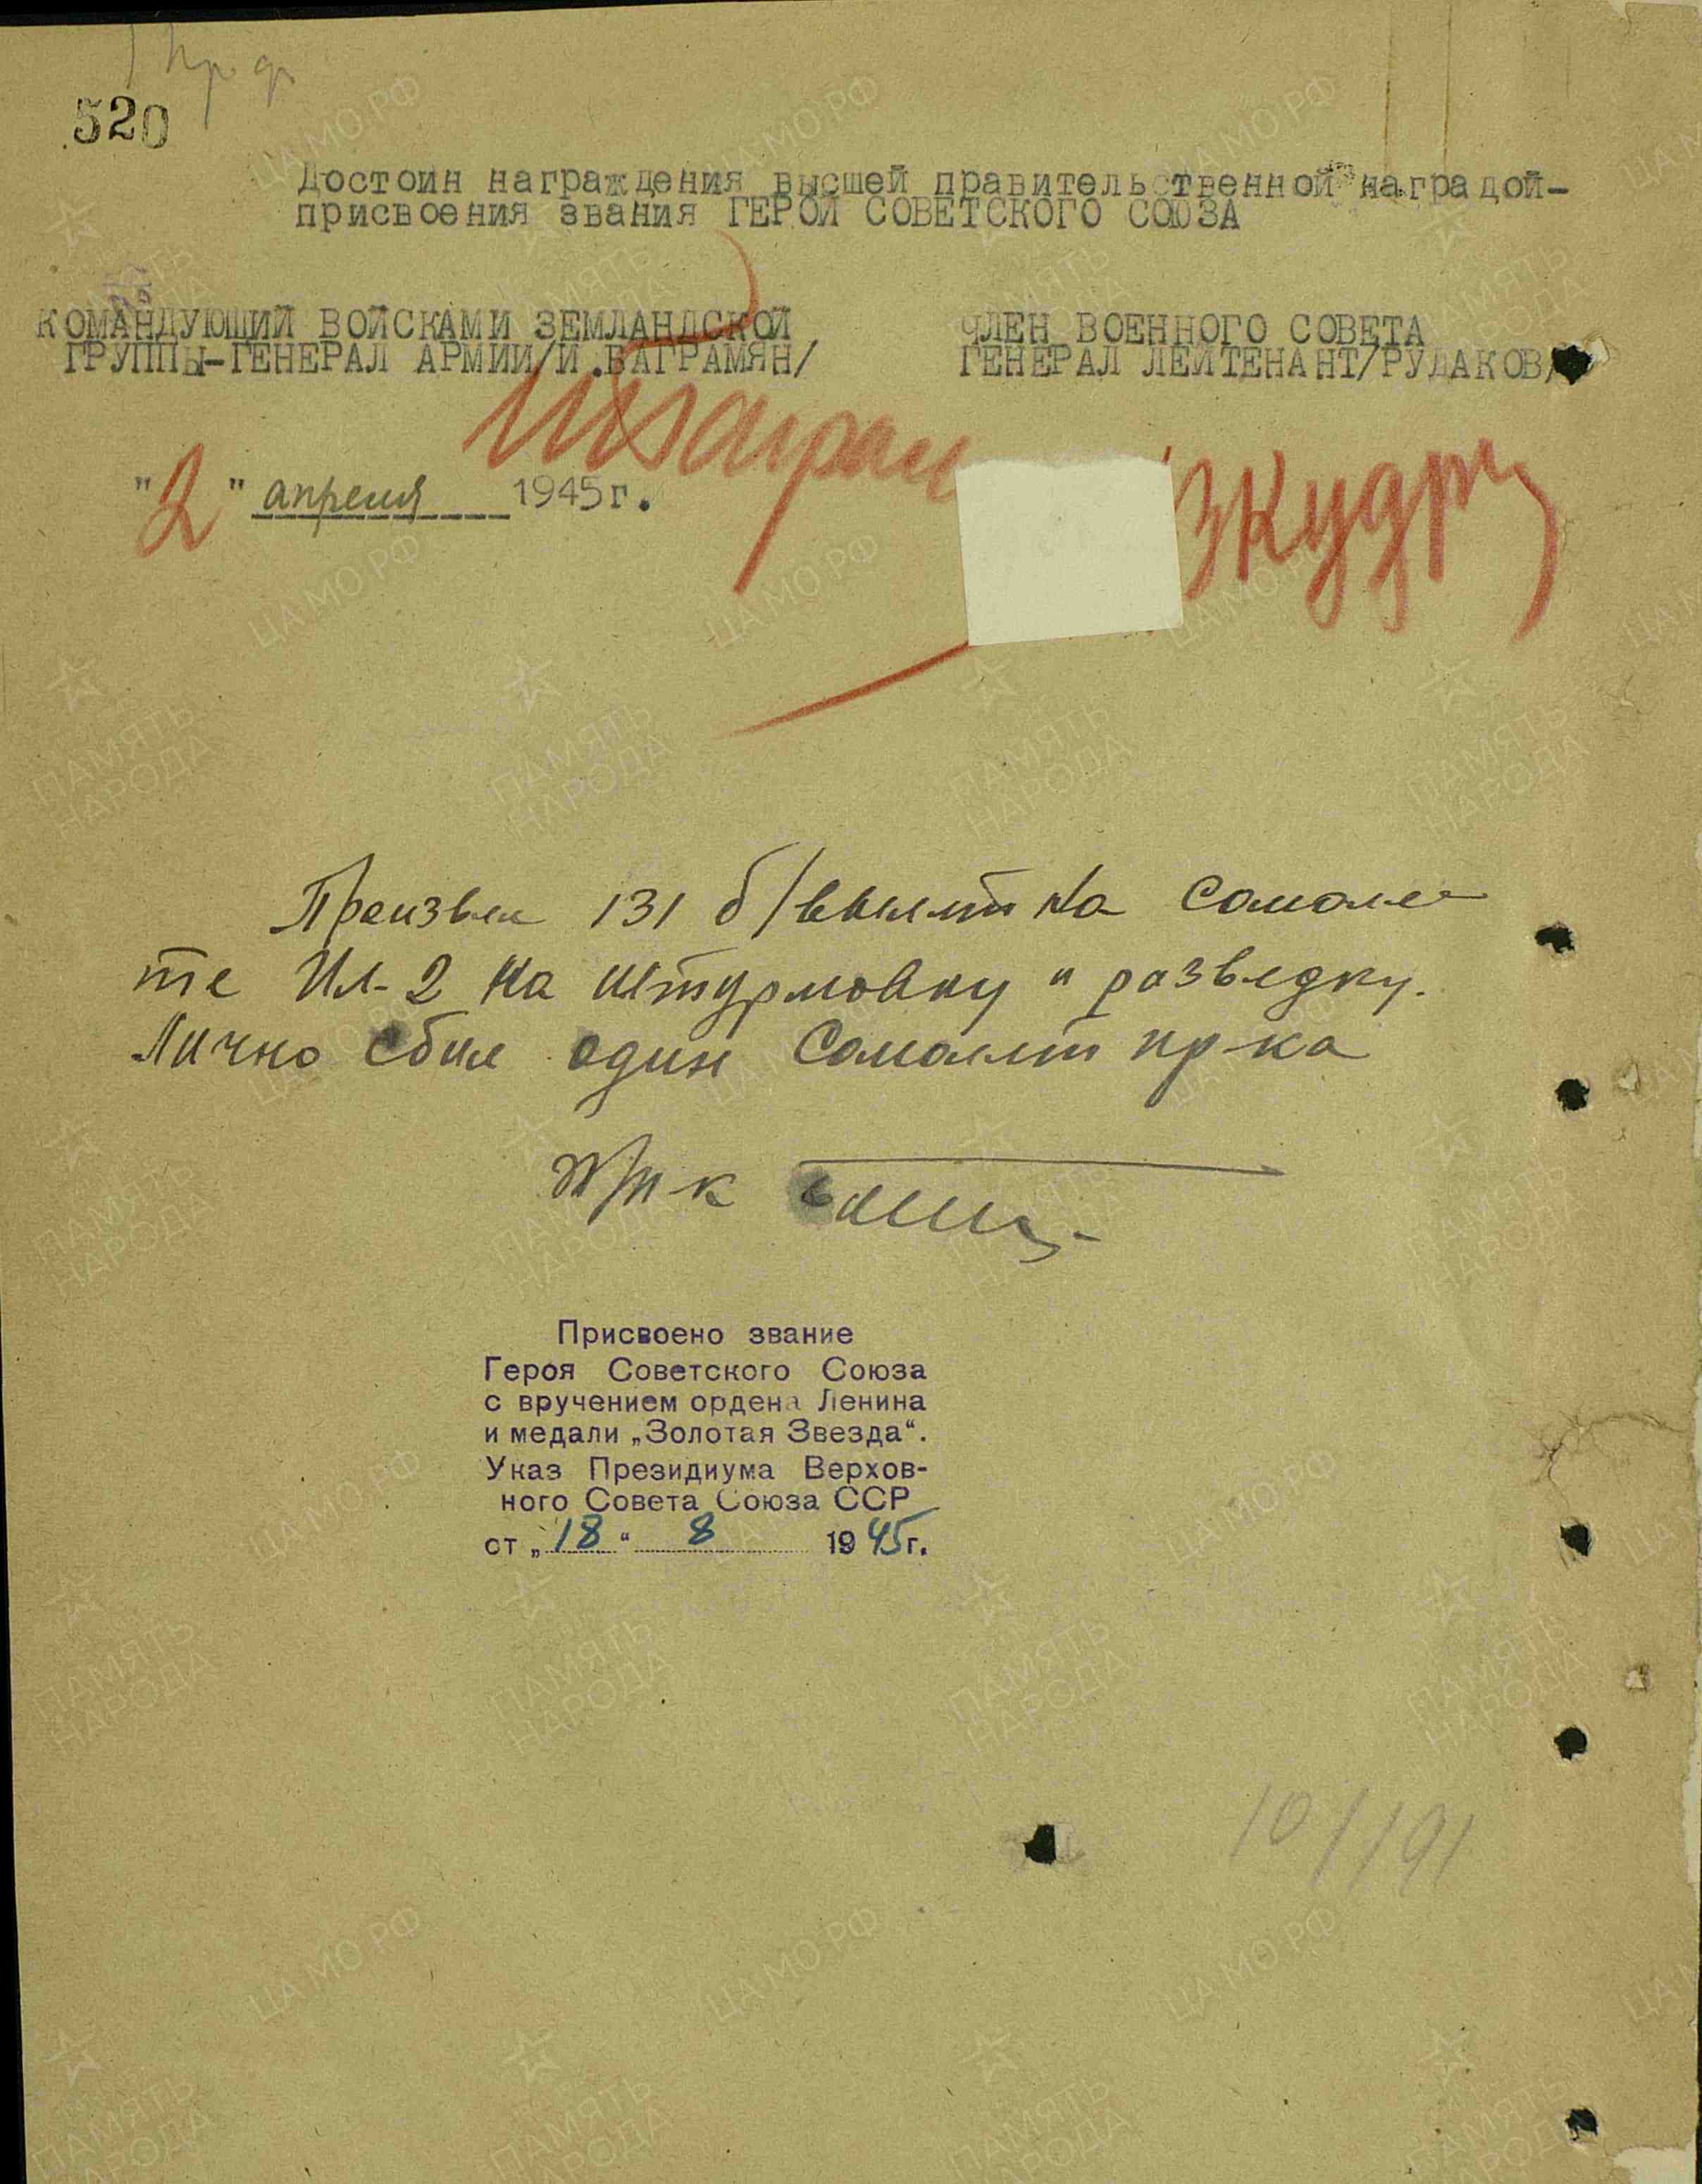 520
Достоин награждения высшей правительственной наградой-
присвоения звания ГЕРОЙ СОВЕТСКОГО СОЮЗА
КОМАНДУЮЩИЙ ВОЙСКАМИ ЗЕМЛАНДСКОЙ
ГРУППЫ-ГЕНЕРАЛ АРМИИ/И.БАГРАМЯН/
ЧЛЕН ВОЕННОГО СОВЕТА
ГЕНЕРАЛ ЛЕЙТЕНАНТ/РУДАКОВ/
"2" апреля 1945г.
Произвел 131 б/вылет на самоле
те Ил-2 на штурмовку и разведку.
Лично сбил один самолет пр-ка
Присвоено звание
Героя Советского Союза
с вручением ордена Ленина
и медали „Золотая Звезда“.
Указ Президиума Верхов-
ного Совета Союза ССР
от „18“ 8 1945г.
10/191
ЦАМО.РФ
ПАМЯТЬ
НАРОДА